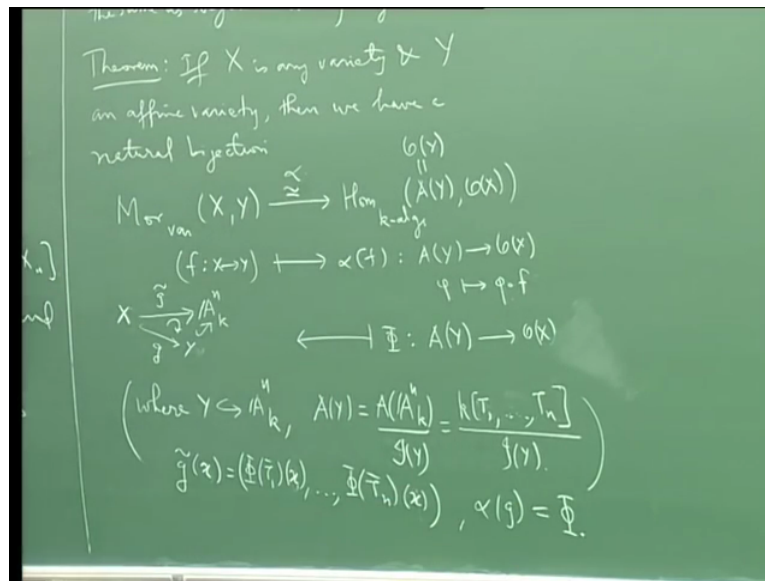 the same as
X_n]
Theorem: If X is any variety & Y
an affine variety, then we have a
natural bijection
O(Y)
||
Mor_var (X,Y) →^α_≃ Hom_k-algs (A(Y), O(X))
(f: X→Y) ⟼ α(f) : A(Y) → O(X)
φ ↦ φ∘f
X →^g̃ A^n_k
g Y
⟵| Φ : A(Y) → O(X)
(where Y ↪ A^n_k, A(Y) = A(A^n_k)/I(Y) = k[T_1,…,T_n]/I(Y).)
g̃(x) = (Φ(T̄_1)(x),…,Φ(T̄_n)(x)), α(g) = Φ.